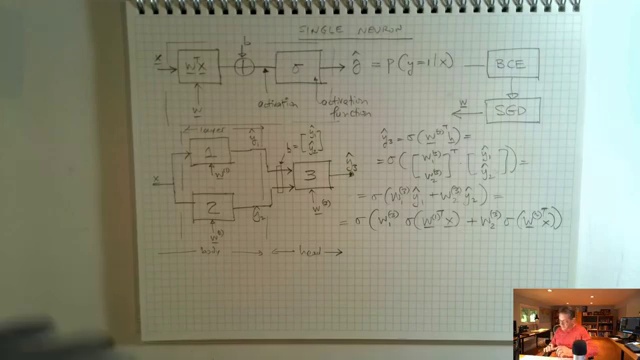 SINGLE NEURON
x → wᵀx → ⊕ → σ → ŷ = P(y=1|x) — BCE
b
w
activation
activation function
SGD
w
layer
ŷ₁
1
w⁽¹⁾
h = [ŷ₁ ŷ₂]
3
ŷ₃
w⁽³⁾
x
2
w⁽²⁾
ŷ₂
body
head
ŷ₃ = σ(w⁽³⁾ᵀ h) =
= σ([w₁⁽³⁾ w₂⁽³⁾]ᵀ [ŷ₁ ŷ₂]) =
= σ(w₁⁽³⁾ ŷ₁ + w₂⁽³⁾ ŷ₂) =
= σ(w₁⁽³⁾ σ(w⁽¹⁾ᵀ x) + w₂⁽³⁾ σ(w⁽²⁾ᵀ x))